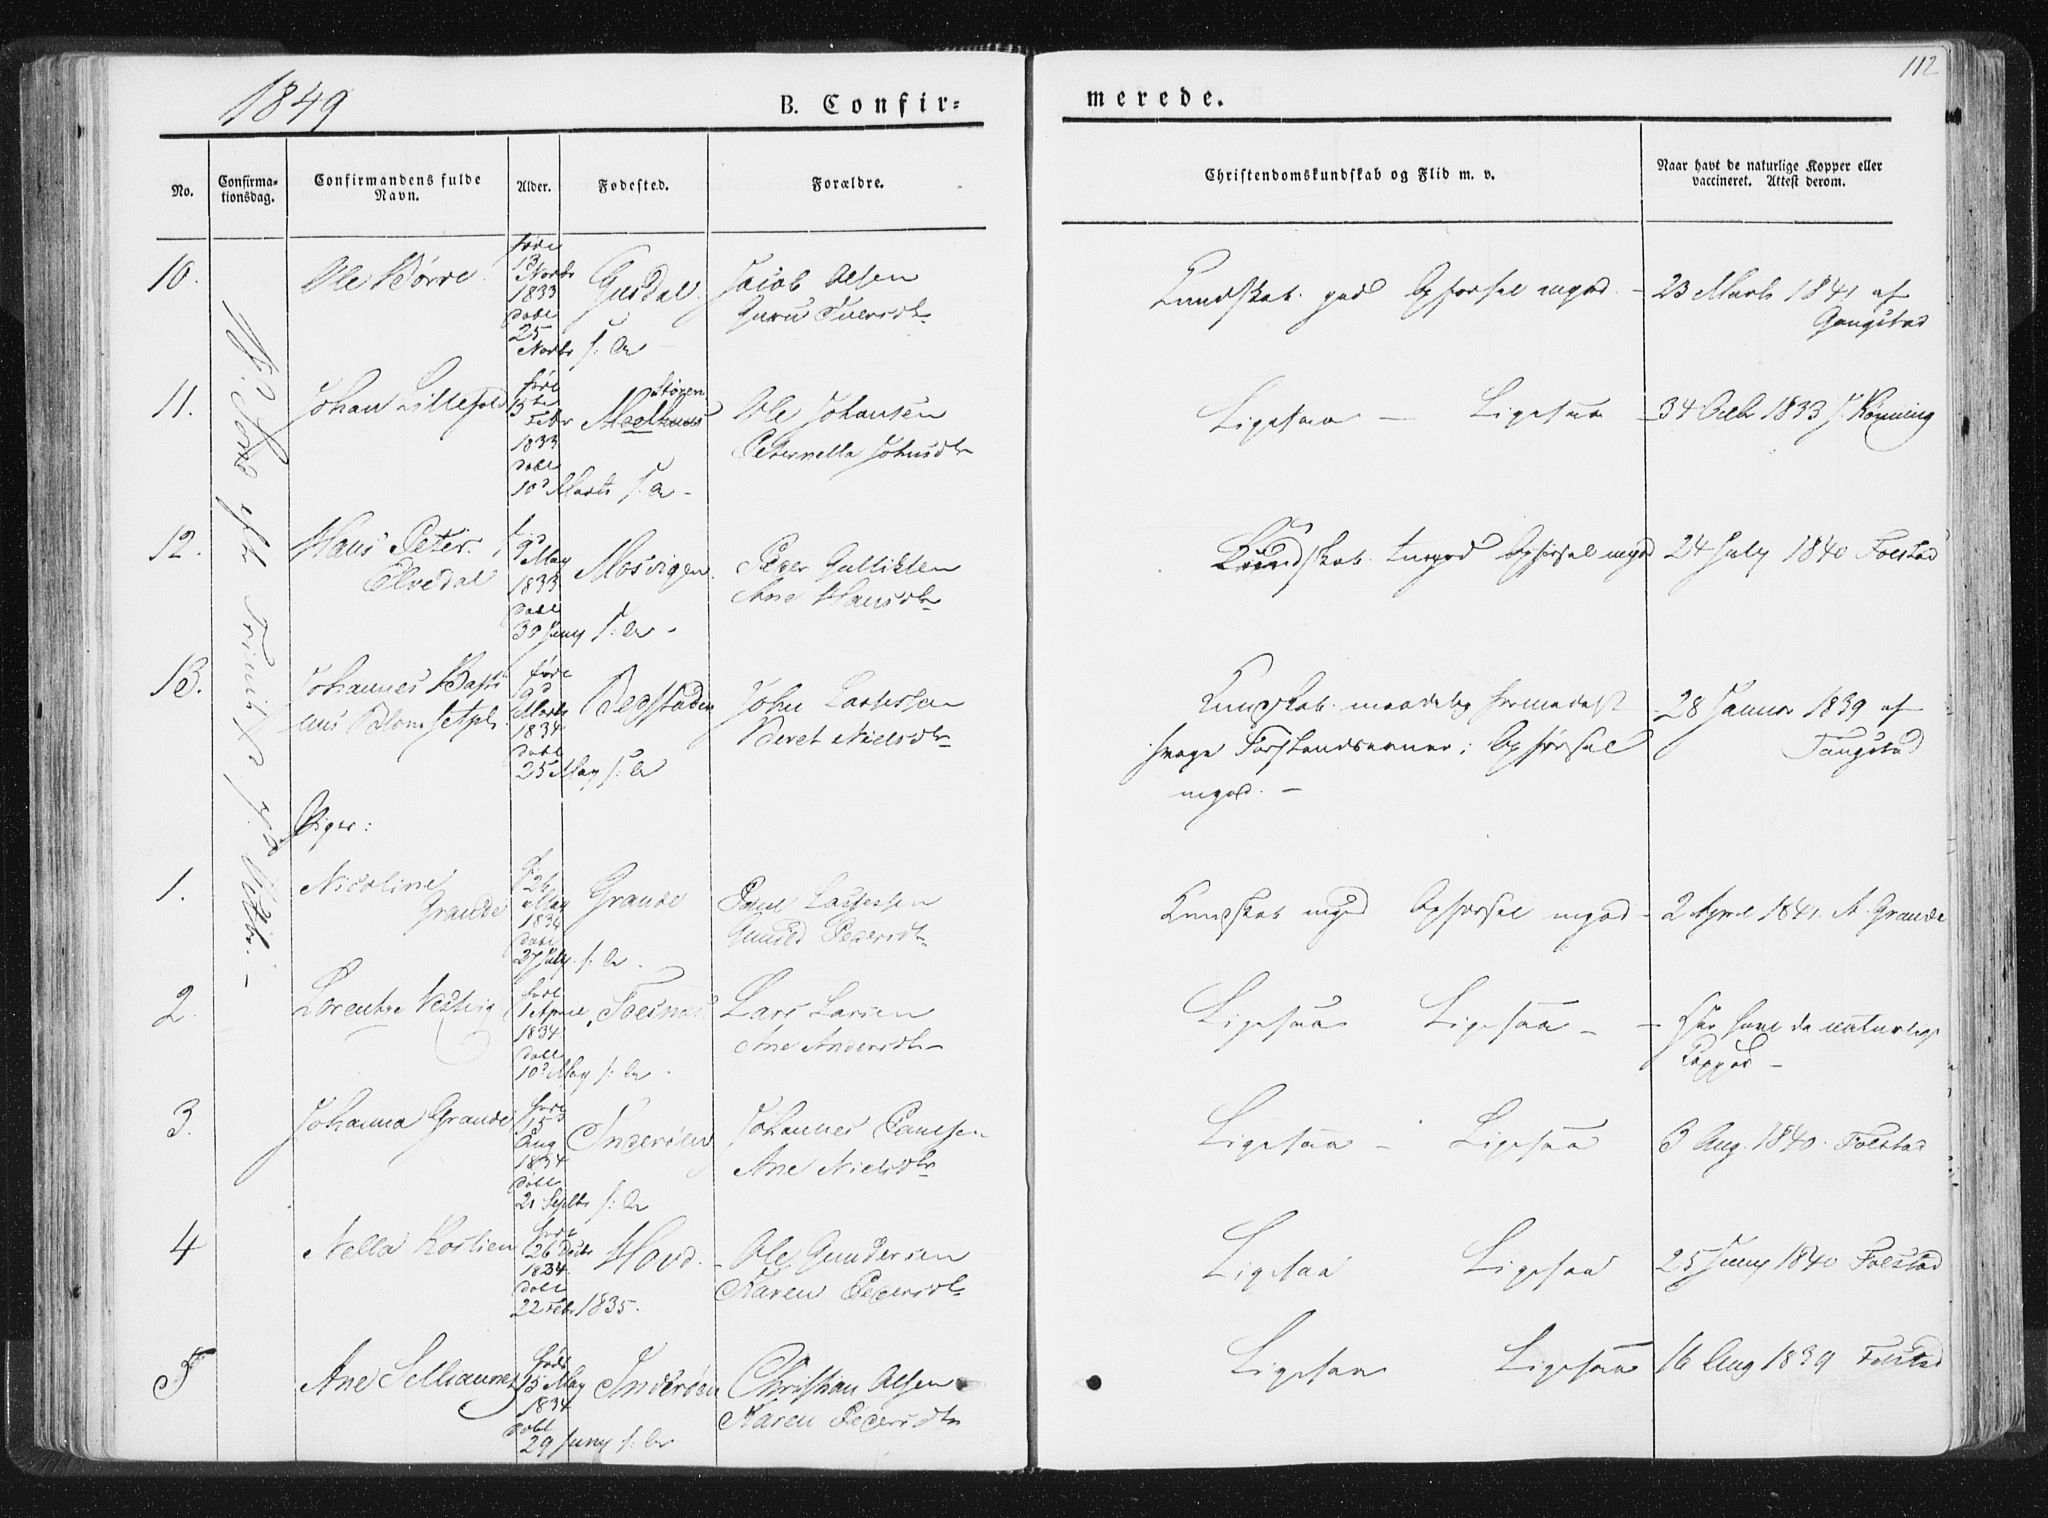 112
1849
B. Confir-
merede.
No.
Confirma-
tionsdag.
Confirmandens fulde
Navn.
Alder.
Fødested.
Forældre.
Christendomskundskab og Flid m. v.
Naar havt de naturlige Kopper eller
vaccineret. Attest derom.
10.
Ole Børve
føde
13
Novbr
1833
Døbt
25
Novbr s: A
Jacob Olsen
Guru
Kundskab god Opførsel mgod - 23 Marts 1841 af
Gangstad
11.
Johan Lillefold
Febr
1833
Døbt
10d Marts s: A -
Størens
Meelhuus
Ole Johansen
Peternella Johnsdtr
Ligesaa - Ligesaa - 1833 J. Rønning
12.
Hans Peter
Elvedal
9d
May
1833
Døbt
30 Juny s: A -
Mosvigen
Peder Gulliksen
Ane Hansdtr
Kundskab tmgod Opførsel mgod 24 July 1840 Folstad
13.
Johannes
føde
19d
Marts
1834
Døbt
25 May s: A
Begstaden
John Larssen
Beret Nielsdtr
Kundskab maadelig formedelst
svage Forstandsevner; Opførsel
mgod. -
28 Januar 1839 af
Fangstad
Piger:
1.
Nicoline
Grande
f
26
May
1834
Døbt
27 July s: A
Grande
Paul Larsen
Gunild Pedersdtr
Kundskab mgod Opførsel mgod - 2 April 1841. A. Grande
2.
Lorentze Vestvig
føde
1 April
1834
Døbt
10d May s: A
Fosnæs
Lars Larsen
Ane Andersdtr
Ligesaa Ligesaa - - Har havt de naturlige
Kopper -
3.
Johanna Grande
føde
15
Aug
1834
Døbt
21 Septbr s: A
Inderøen
Johannes Paulsen
Ane Nielsdtr
Ligesaa - Ligesaa 3 Aug. 1840. Folstad
4
Nella Korlien
føde
26 Decbr
1834
Døbt
22 Febr 1835.
Hovd.
Ole Gundersen
Karen Pedersdtr
Ligesaa Ligesaa 25 Juny 1840 Folstad
5
Ane Selliaunet
føde
15 May
1834
Døbt
29 Juny s: A
Inderøen
Christian Olsen
Karen Pedersdtr
Ligesaa Ligesaa 16 Aug 1839 Folstad